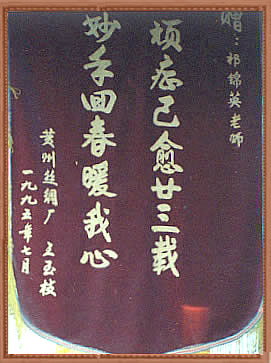 赠：祁锦英老师
顽症已愈廿三载
妙手回春暖我心
黄州丝绸厂 王玉枝
一九九五年七月